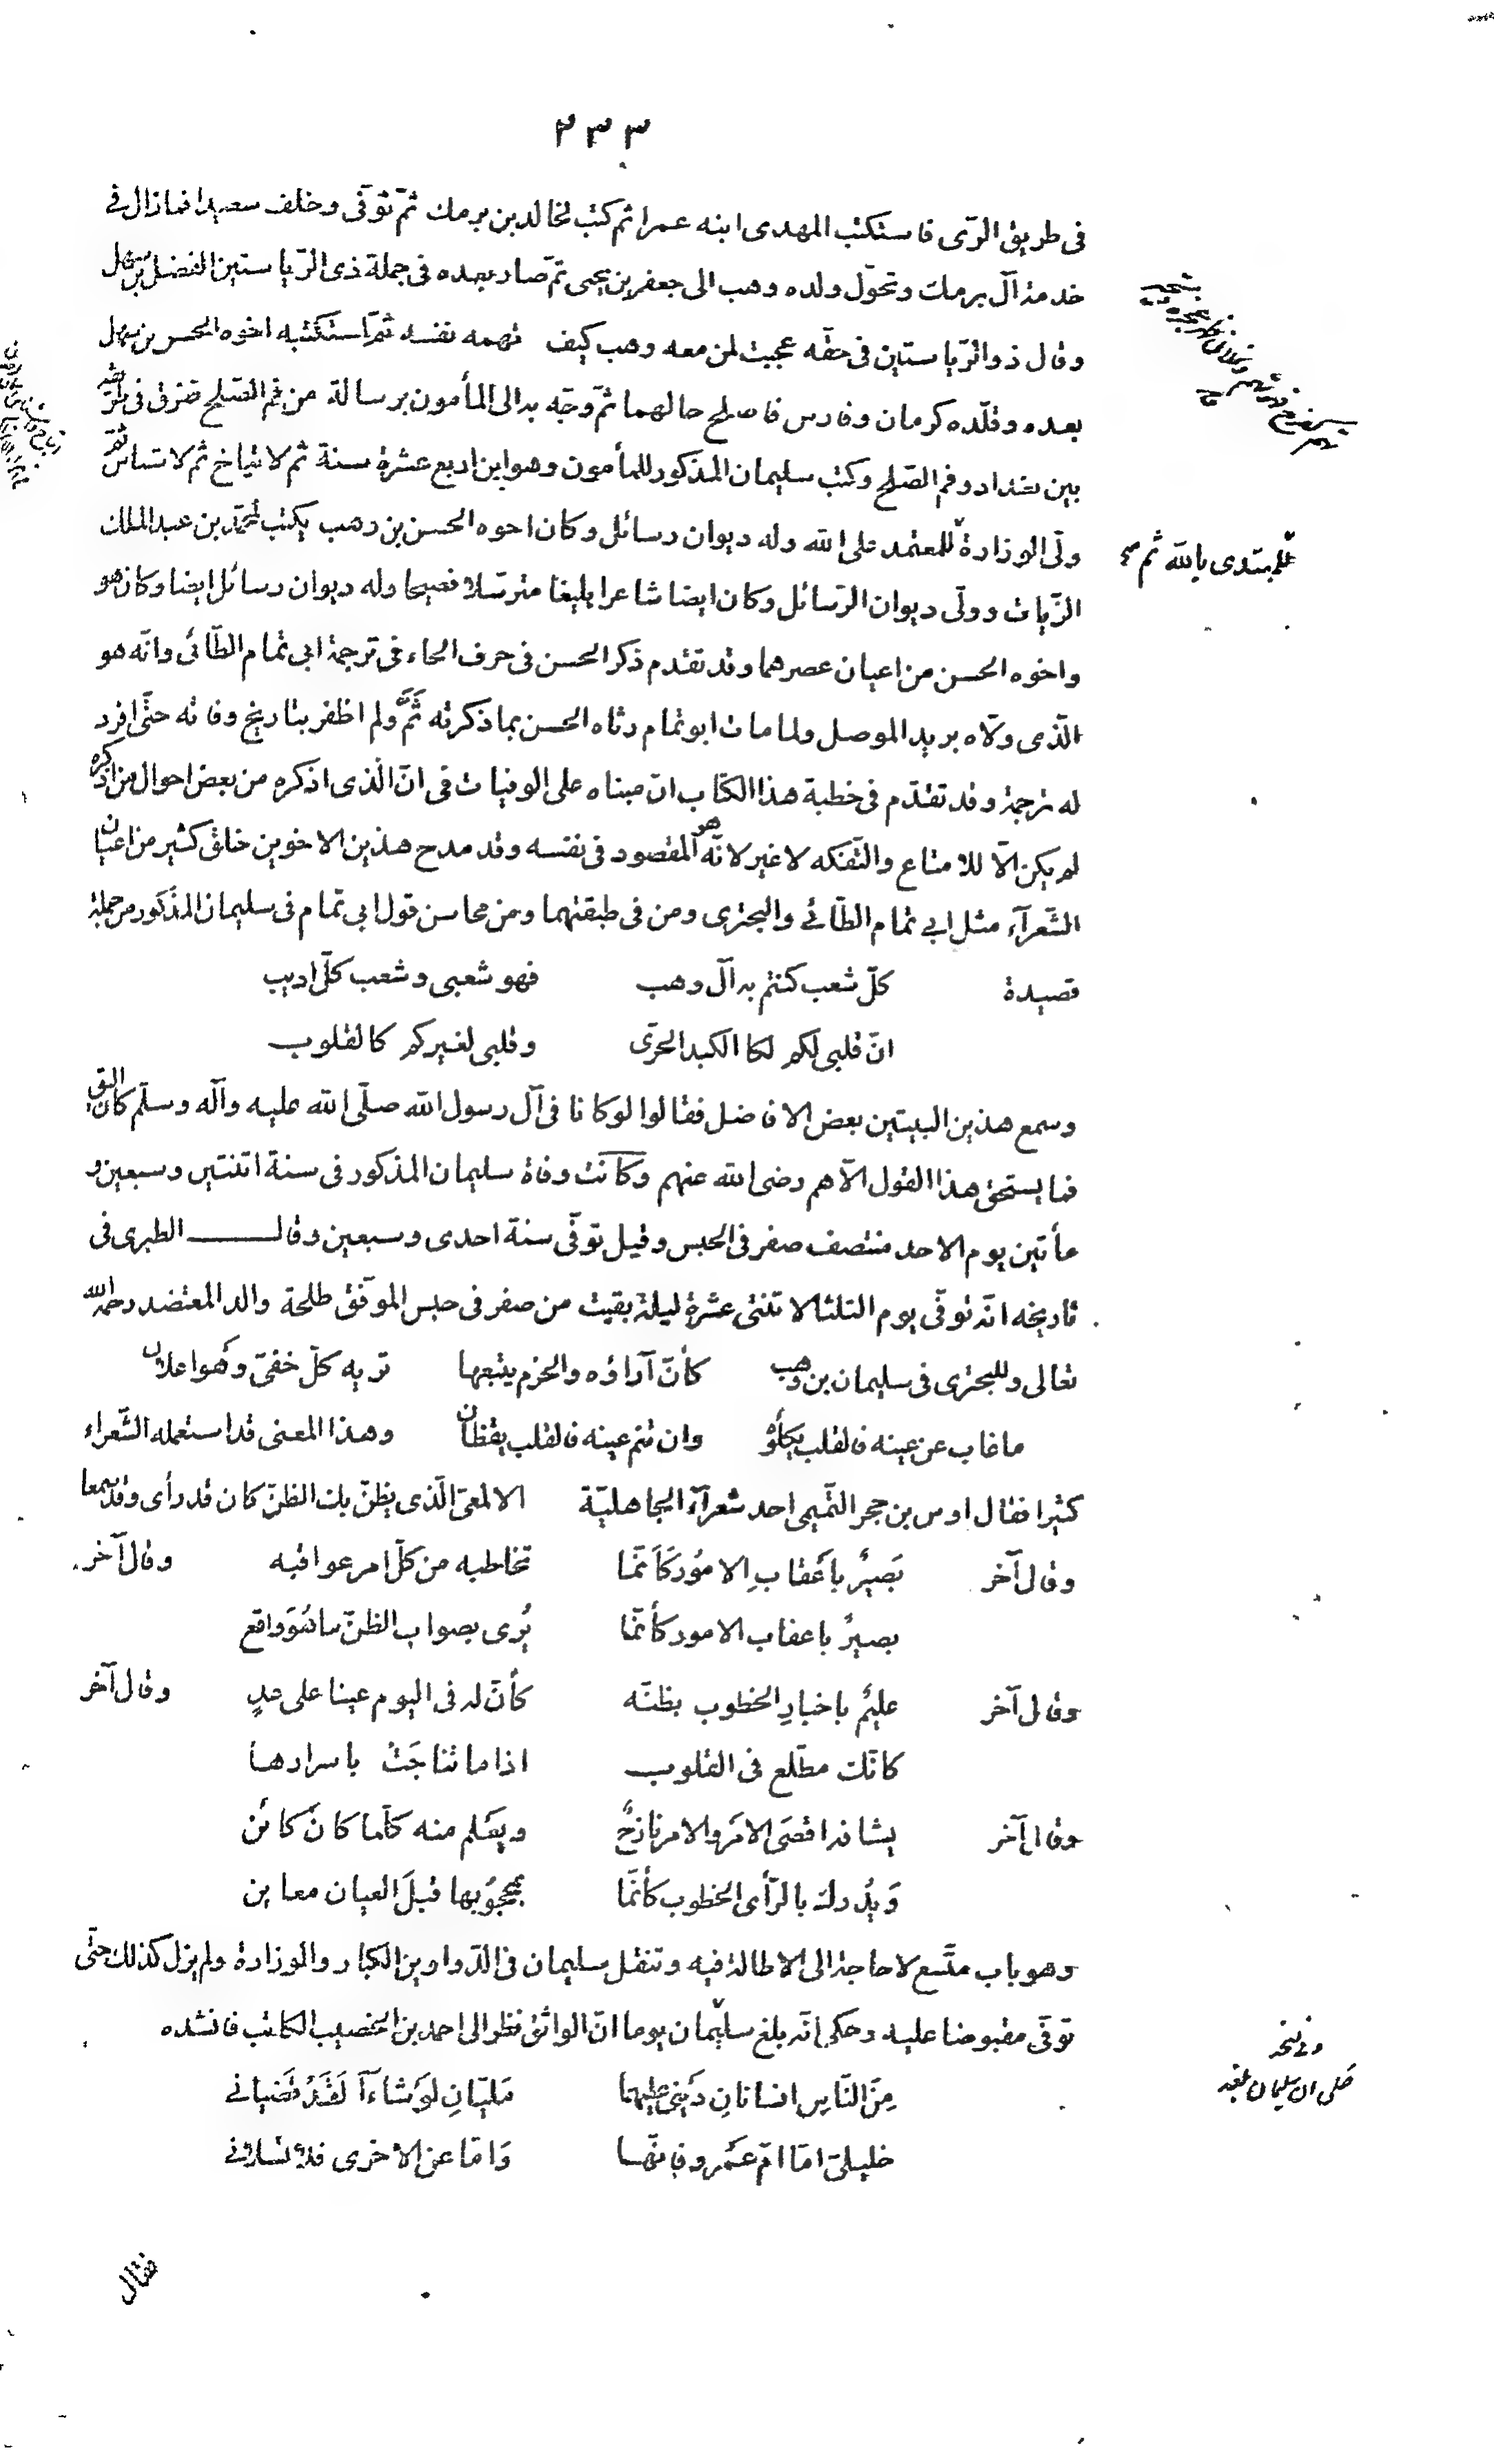 ٢٣٣
فى طريق الرّى فاستكتب المهدى ابنه عمرا ثم كتب لخالد بن برمك ثمّ توفّى وخلف سعيدا فما زال فى
خدمة آل برمك وتحوّل ولده وهب الى جعفر بن يحيى ثمّ صار بعده فى جملة ذى الرّياستين الفضل بن سهل
وقال ذو الرّياستين فى حقّه عجبت لمن معه وهب كيف تهمه نفسه ثمّ استكتبه اخوه الحسن بن سهل
بعده وقلّده كرمان وفارس فاصلح حالهما ثمّ وجّه به الى المأمون برسالة من فم الصّلح فغرق فى طريقه
بين بغداد وفم الصّلح وكتب سليمان المذكور للمأمون وهو ابن اربع عشرة سنة ثم لايتاخ ثم لاشناس ثمّ
ولّى الوزارة للمعتمد على الله وله ديوان رسائل وكان اخوه الحسن بن وهب يكتب لمحمّد بن عبد الملك
للمهتدى بالله ثم
الزّيات وولّى ديوان الرّسائل وكان ايضا شاعرا بليغا مترسّلا فصيحا وله ديوان رسائل ايضا وكان هو
واخوه الحسن من اعيان عصرهما وقد تقدم ذكر الحسن فى حرف الحاء فى ترجمة ابى تمام الطّائى وانّه هو
الّذى ولّاه بريد الموصل ولما مات ابو تمام رثاه الحسن بما ذكرته ثَمَّ ولم اظفر بتاريخ وفاته حتّى افرد
له ترجمة وقد تقدّم فى خطبة هذا الكتاب انّ مبناه على الوفيات فى انّ الّذى اذكره من بعض احوال من اذكره
لم يكن الّا للامتاع والتّفكه لا غير لانّه هو المقصود فى نفسه وقد مدح هذين الاخوين خلق كثير من اعيان
الشّعرآء مثل ابى تمام الطّائى والبحترى ومن فى طبقتهما ومن محاسن قول ابى تمّام فى سليمان المذكور من جملة
قصيدة كلّ شعب كنتم به آل وهب فهو شعبى وشعب كلّ اديب
انّ قلبى لكم لكا الكبد الحرّى وقلبى لغيركم كالقلوب
وسمع هذين البيتين بعض الافاضل فقالوا لو كانا فى آل رسول الله صلّى الله عليه وآله وسلّم كان اليق
فما يستحق هذا القول الّا هم رضى الله عنهم وكانت وفاة سليمان المذكور فى سنة اثنتين وسبعين و
مأتين يوم الاحد منتصف صفر فى الحبس وقيل توفّى سنة احدى وسبعين وقال الطبرى فى
تاريخه انّه توفّى يوم الثلثا لاثنتى عشرة ليلة بقيت من صفر فى حبس الموفّق طلحة والد المعتضد رحمه الله
تعالى وللبحترى فى سليمان بن وهب كأنّ آراؤه والحزم يتبعها تريه كلّ خفىّ وهو اعلان
ما غاب عن عينه فالقلب يكلؤه وان تنم عينه فالقلب يقظان وهذا المعنى قد استعمله الشّعراء
كثيرا فقال اوس بن حجر التّميمى احد شعرآء الجاهليّة الالمعىّ الّذى يظنّ بك الظنّ كان قد رأى وقد سمعا
وقال آخر بَصيرٌ بأعقابِ الامور كأنّما تخاطبه من كلّ امر عواقبه وقال آخر
بصيرٌ باعقاب الامور كأنّما يُرى بصواب الظنّ ما هُوَ واقع
وقال آخر عليمٌ باخبارِ الخطوب بظنّه كأنّ له فى اليوم عينا على غدٍ وقال آخر
كانّك مطّلع فى القلوب اذا ما تناجَتْ باسرارها
وقال آخر يشاهد اقصَى الامر والامر نازحٌ ويعلم منه كلّما كان كائن
وَيُدرك بالرّأى الخطوب كأنّما قبلَ العيان معاين
وهو باب متّسع لا حاجة الى الاطالة فيه وتنقل سليمان فى الدّواوين الكبار والوزارة ولم يزل كذلك حتّى
توفّى مقبوضا عليه وحكى انّه بلغ سليمان يوما انّ الواثق نظر الى احمد بن الخصيب الكاتب فانشده
مِنَ النّاسِ انسانانِ دَينى عليهما مَليّانِ لو شاءآ لَقَدْ قَضيانى
خليلىّ امّا امّ عَمرو فانّها وَامّا عن الاخرى فلا تسلانى
فقال